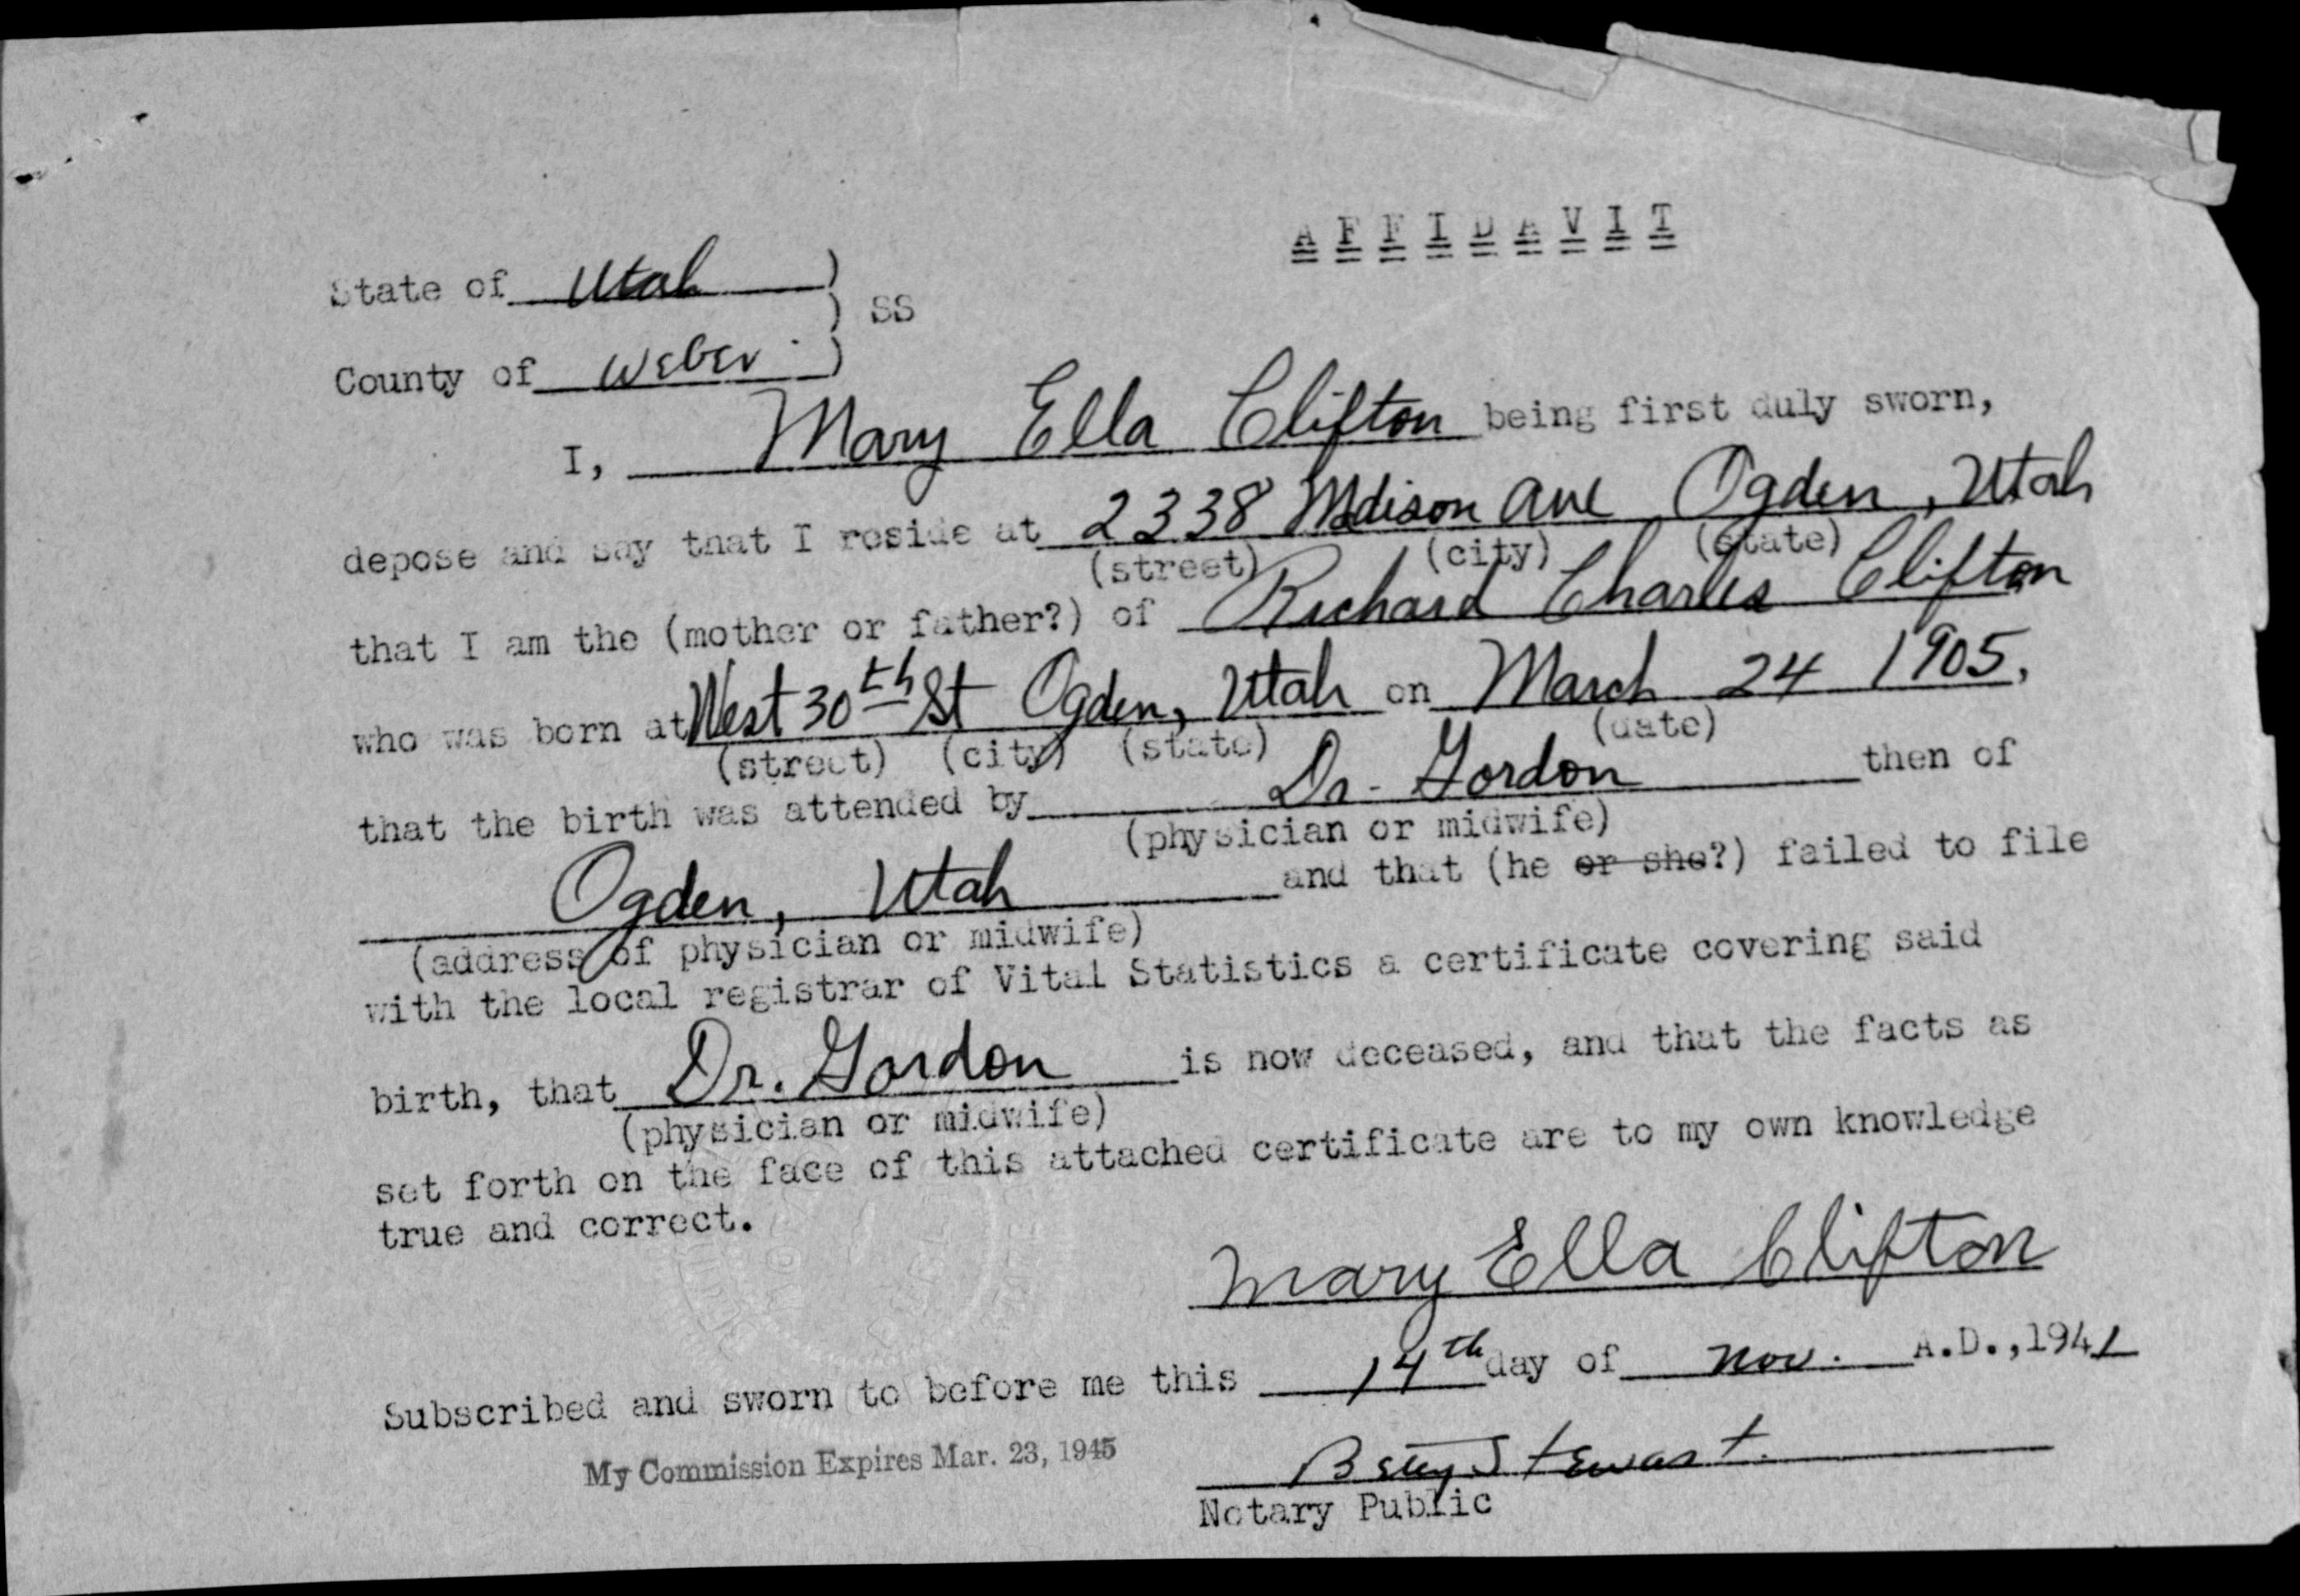 A F F I D A V I T
State of Utah )
) SS
County of Weber )
I, Mary Ella Clifton being first duly sworn,
depose and say that I reside at 2338 Mdison Ave Ogden, Utah
(street) (city) (state)
that I am the (mother or father?) of Richard Charles Clifton
who was born at West 30th St Ogden, Utah on March 24 1905.
(street) (city) (state) (date)
that the birth was attended by Dr. Gordon then of
(physician or midwife)
Ogden, Utah and that (he or she?) failed to file
(address of physician or midwife)
with the local registrar of Vital Statistics a certificate covering said
birth, that Dr. Gordon is now deceased, and that the facts as
(physician or midwife)
set forth on the face of this attached certificate are to my own knowledge
true and correct.
Mary Ella Clifton
Subscribed and sworn to before me this 14th day of Nov. A.D., 1941
My Commission Expires Mar. 23, 1945
Betty Stewart.
Notary Public